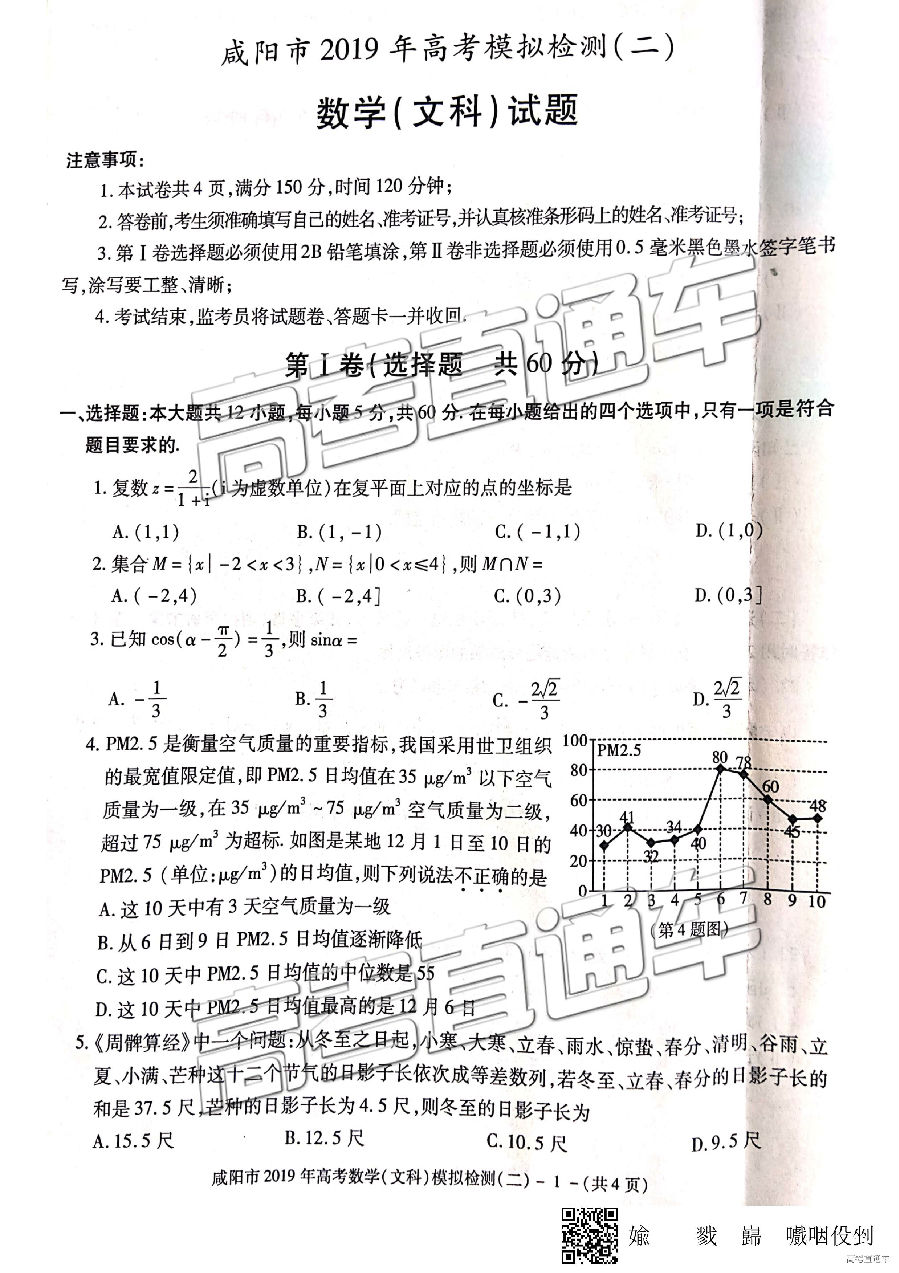 咸阳市 2019 年高考模拟检测(二)
数学(文科)试题
注意事项:
1. 本试卷共 4 页,满分 150 分,时间 120 分钟;
2. 答卷前,考生须准确填写自己的姓名、准考证号,并认真核准条形码上的姓名、准考证号;
3. 第Ⅰ卷选择题必须使用2B 铅笔填涂,第Ⅱ卷非选择题必须使用0.5 毫米黑色墨水签字笔书
写,涂写要工整、清晰;
4. 考试结束,监考员将试题卷、答题卡一并收回.
高考直通车
第Ⅰ卷(选择题 共 60 分)
一、选择题:本大题共 12 小题,每小题 5 分,共 60 分. 在每小题给出的四个选项中,只有一项是符合
题目要求的.
1. 复数 z = 2/(1+i) (i 为虚数单位)在复平面上对应的点的坐标是
A. (1,1) B. (1, -1) C. ( -1,1) D. (1,0)
2. 集合 M = {x| -2 < x < 3} ,N = {x|0 < x ≤ 4} ,则 M∩N =
A. ( -2,4) B. ( -2,4] C. (0,3) D. (0,3]
3. 已知 cos(α - π/2) = 1/3,则 sinα =
A. - 1/3 B. 1/3 C. - 2√2/3 D. 2√2/3
4. PM2. 5 是衡量空气质量的重要指标,我国采用世卫组织
的最宽值限定值,即 PM2. 5 日均值在 35 μg/m³ 以下空气
质量为一级,在 35 μg/m³ ~ 75 μg/m³ 空气质量为二级,
超过 75 μg/m³ 为超标. 如图是某地 12 月 1 日至 10 日的
PM2. 5 (单位:μg/m³)的日均值,则下列说法不正确的是
A. 这 10 天中有 3 天空气质量为一级
B. 从 6 日到 9 日 PM2. 5 日均值逐渐降低
C. 这 10 天中 PM2. 5 日均值的中位数是 55
D. 这 10 天中 PM2. 5 日均值最高的是 12 月 6 日
PM2.5
100
80
60
40
20
0
30 41 32 34 40 80 78 60 45 48
1 2 3 4 5 6 7 8 9 10
(第 4 题图)
高考直通车
5. 《周髀算经》中一个问题:从冬至之日起,小寒、大寒、立春、雨水、惊蛰、春分、清明、谷雨、立
夏、小满、芒种这十二个节气的日影子长依次成等差数列,若冬至、立春、春分的日影子长的
和是 37. 5 尺,芒种的日影子长为 4. 5 尺,则冬至的日影子长为
A. 15. 5 尺 B. 12. 5 尺 C. 10. 5 尺 D. 9. 5 尺
咸阳市 2019 年高考数学(文科)模拟检测(二) - 1 - (共 4 页)
高考直通车